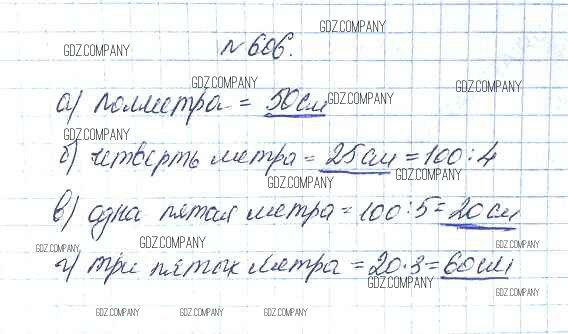 GDZ.COMPANY
№ 606.
GDZ.COMPANY
GDZ.COMPANY
GDZ.COMPANY
GDZ.COMPANY
а) полметра = 50см
GDZ.COMPANY
GDZ.COMPANY
б) четверть метра = 25см = 100:4
GDZ.COMPANY
GDZ.COMPANY
в) одна пятая метра = 100:5 = 20см
GDZ.COMPANY
GDZ.COMPANY
GDZ.COMPANY
г) три пятых метра = 20·3 = 60см
GDZ.COMPANY
GDZ.COMPANY
GDZ.COMPANY
GDZ.COMPANY
GDZ.COMPANY